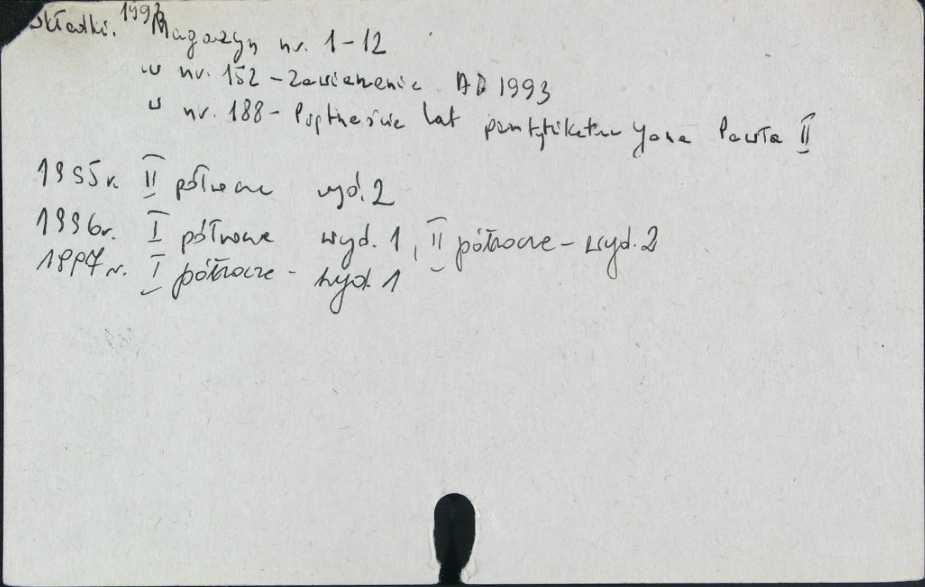 Wkładki. 1993 Magazyn nr. 1-12
w nr. 152 - Zawierzenie AD 1993
w nr. 188 - Piętnaście lat pontyfikatu Jana Pawła II
1995 r. II półrocze wyd. 2
1996 r. I półrocze wyd. 1, II półrocze - wyd. 2
1997 r. I półrocze - wyd. 1